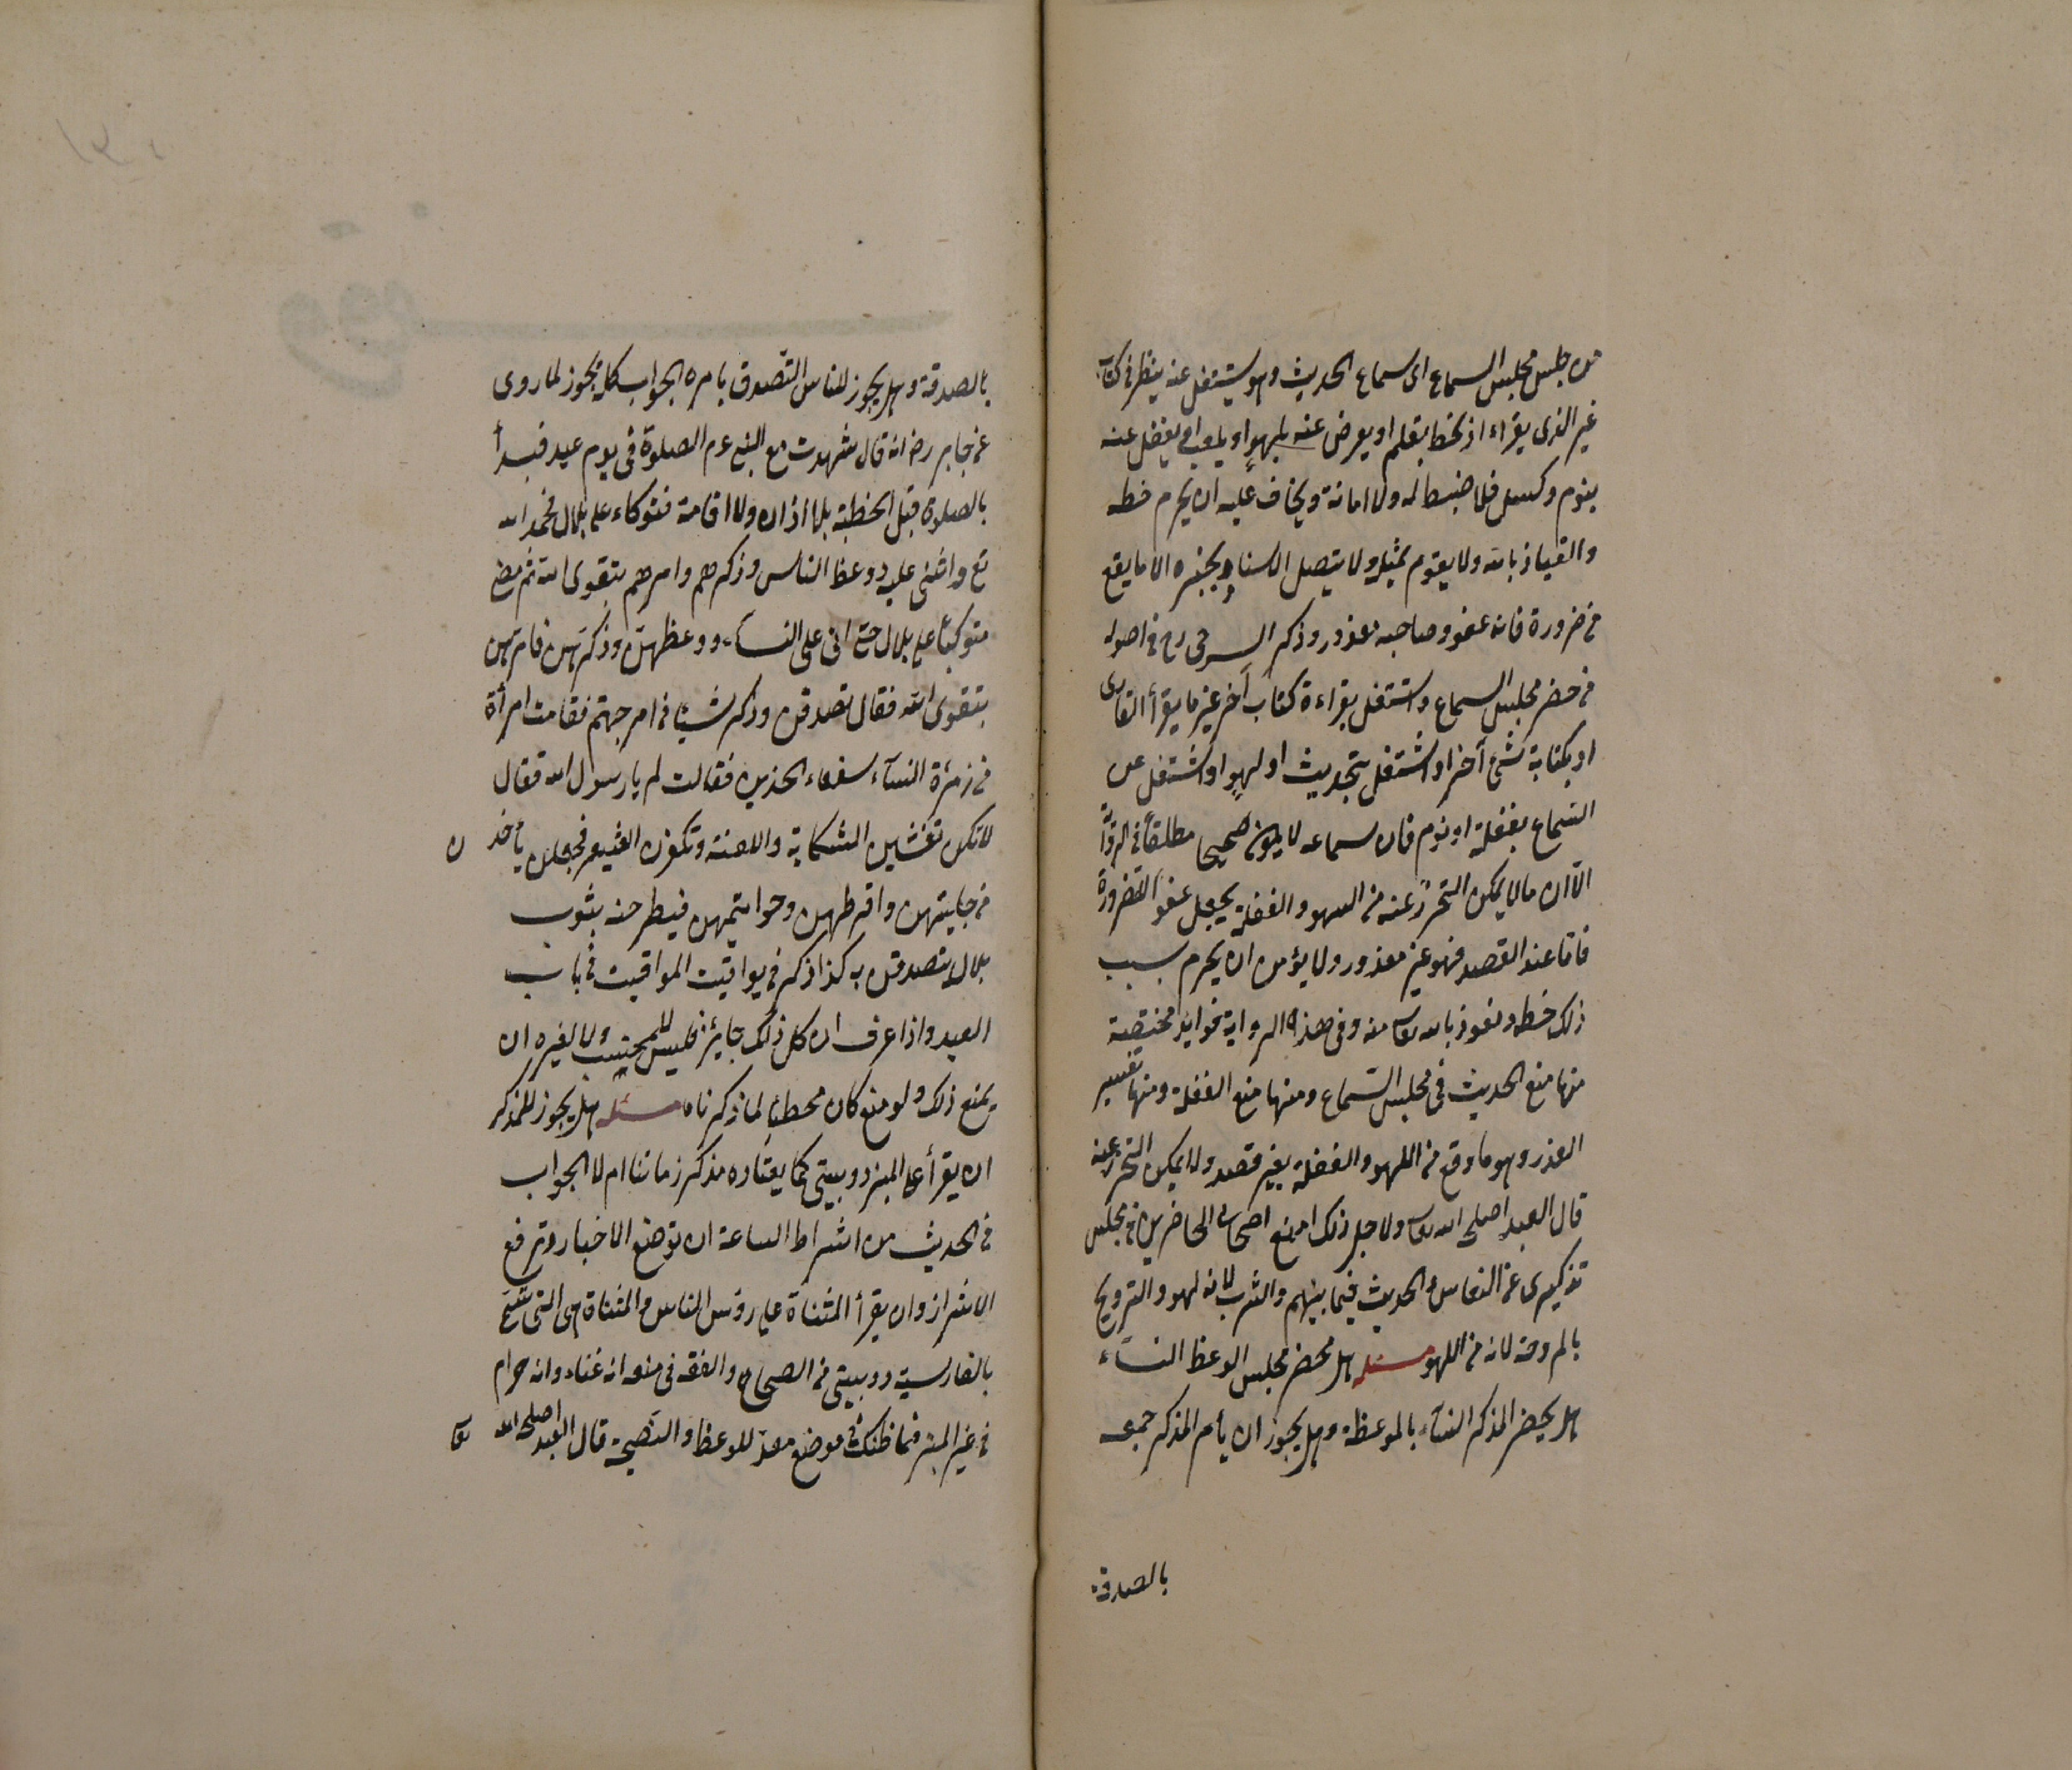 من جلس مجلس السماع اى سماع الحديث وهو يشتغل عنه ينظر فى كتاب
غير الذى يقراء او يخط بقلم او يعرض عنه بلهو او يلعب او يغفل عنه
بنوم وكسل فلا ضبط له ولا امانة ويخاف عليه ان يحرم حظه
والعياذ بالله ولا يقوم بمثله ولا يتصل الاسناد بخبره الا ما يقع
من ضرورة فانه عفو وصاحبه معذور وذكر السرخسى رح فى اصوله
من حضر مجلس السماع واشتغل بقراءة كتاب آخر غير ما يقرأ القارى
او بكتابة شئ آخر او اشتغل بتحديث او لهو او اشتغل عن
السماع بغفلة او نوم فان سماعه لا يكون صحيحا مطلقا فى الرواية
الا ان ما لا يمكن التحرز عنه من السهو والغفلة يجعل عفوا للضرورة
فاما عند القصد فهو غير معذور ولا يؤمن ان يحرم بسبب
ذلك حظه ونعوذ بالله تعالى منه وفى هذه الرواية فوائد مختصة
منها منع الحديث فى مجلس السماع ومنها منع الغفلة ومنها تفسير
العذر وهو ما وقع من اللهو والغفلة بغير قصد ولا يمكن التحرز عنه
قال العبد اصلحه الله تعالى ولاجل ذلك امنع اصحابى الحاضرين فى مجلس
تذكيرى عن النعاس والحديث فيما بينهم والشرب لانه لهو والترويح
بالمروحة لانه من اللهو مسئله هل يحضر مجلس الوعظ النساء
هل يحضر المذكر النساء بالموعظة وهل يجوز ان يأمر المذكر جمعه
بالصدقة
بالصدقة وهل يجوز للناس التصدق بامره الجواب كله يجوز لما روى
عن جابر رضه انه قال شهدت مع النبى عم الصلوة فى يوم عيد فبدأ
بالصلوة قبل الخطبة بلا اذان ولا اقامة فتوكاء على بلال فحمد الله
تع واثنى عليه ووعظ الناس وذكرهم وامرهم بتقوى الله ثم مضى
متوكيا على بلال حتى اتى على النساء ووعظهن وذكرهن فامرهن
بتقوى الله فقال تصدقن وذكر شيئا من امر جهنم فقامت امرأة
من زمرة النساء سفعاء الخدين فقالت لم يا رسول الله فقال
لانكن تفشين الشكاية واللعنة وتكفرن العشير فجعلن ياخذن
من حليتهن واقرطهن وخواتيمهن فيطرحنه بثوب
بلال يتصدقن به كذا ذكر فى يواقيت المواقيت فى باب
العيد واذا عرف ان كل ذلك جايز فليس للمحتسب ولا لغيره ان
يمنع ذلك ولو منع كان مخطئا لما ذكرناه مسئله هل يجوز للمذكر
ان يقرأ على المنبر دوبيتى كما يعتاده مذكر زماننا ام لا الجواب
فى الحديث من اشراط الساعة ان توضع الاخيار وترفع
الاشرار وان يقرأ المثناة على رؤس الناس والمثناة هى التى تسمى
بالفارسية دوبيتى من الصحاح والفقه فى منعه انه غناء وانه حرام
فى غير المنبر فما ظنك فى موضع معد للوعظ والنصيحة قال العبد اصلحه الله تعالى